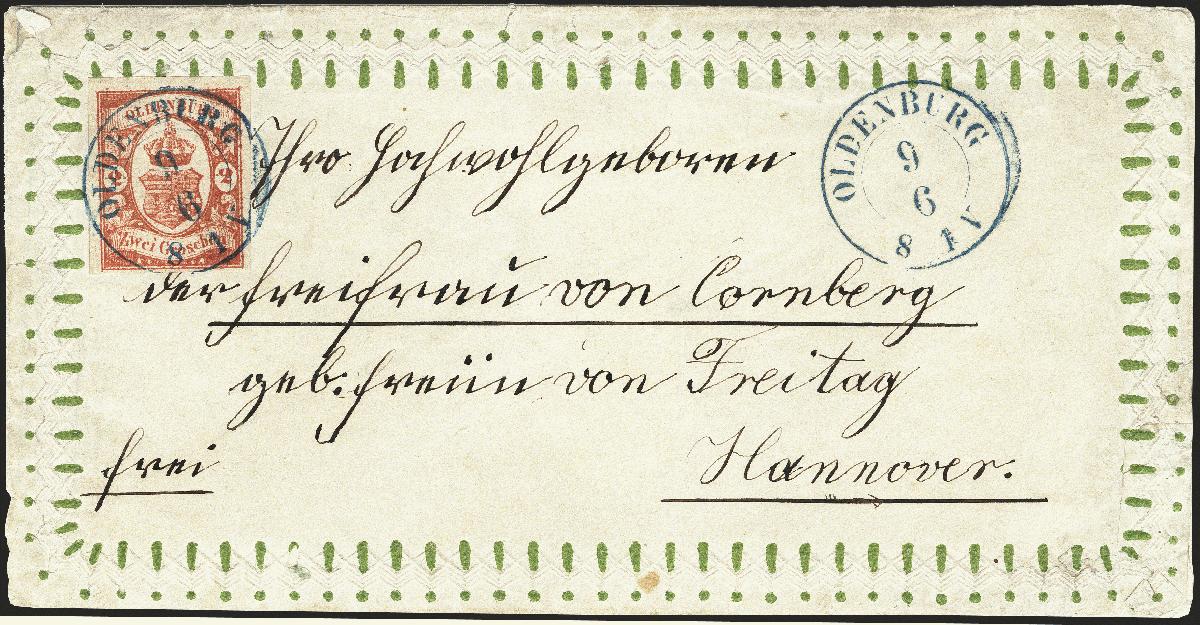 OLDENBURG
Zwei Groschen
2
OLDENBURG
9
6
8 - 1 V
OLDENBURG
9
6
8 - 1 V
Ihro Hochwohlgeboren
der Freifrau von Cornberg
geb. Freiin von Freitag
frei
Hannover.